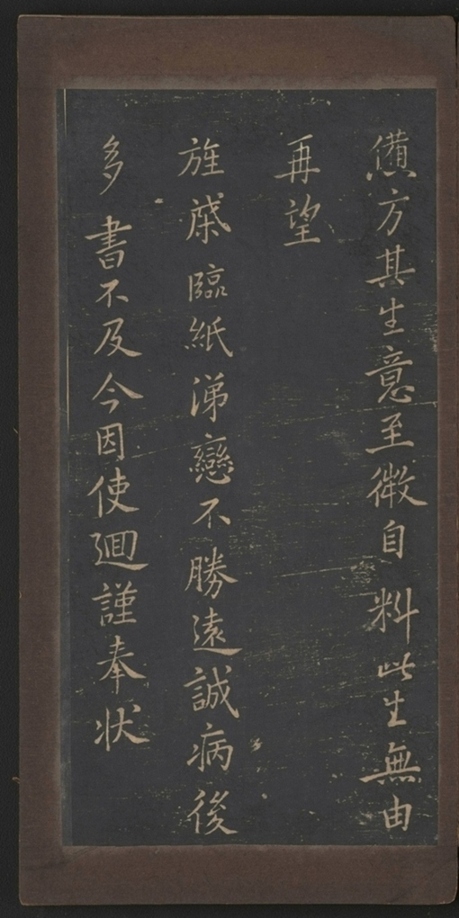 憊方其生意至微自料此生無由
再望
旌棨臨紙涕戀不勝遠誠病後
多書不及今因使廻謹奉狀